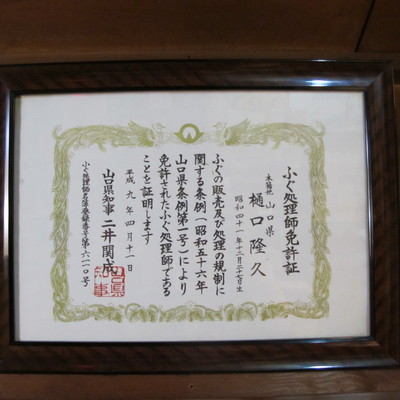 ふぐ処理師免許証
本籍地 山口県
樋口隆久
昭和四十一年十二月二十七日生
ふぐの販売及び処理の規制に
関する条例(昭和五十六年
山口県条例第一号)により
免許されたふぐ処理師である
ことを証明します
平成九年四月十一日
山口県知事 二井関成
山口県
知事
ふぐ処理師名簿登録番号第六二〇号